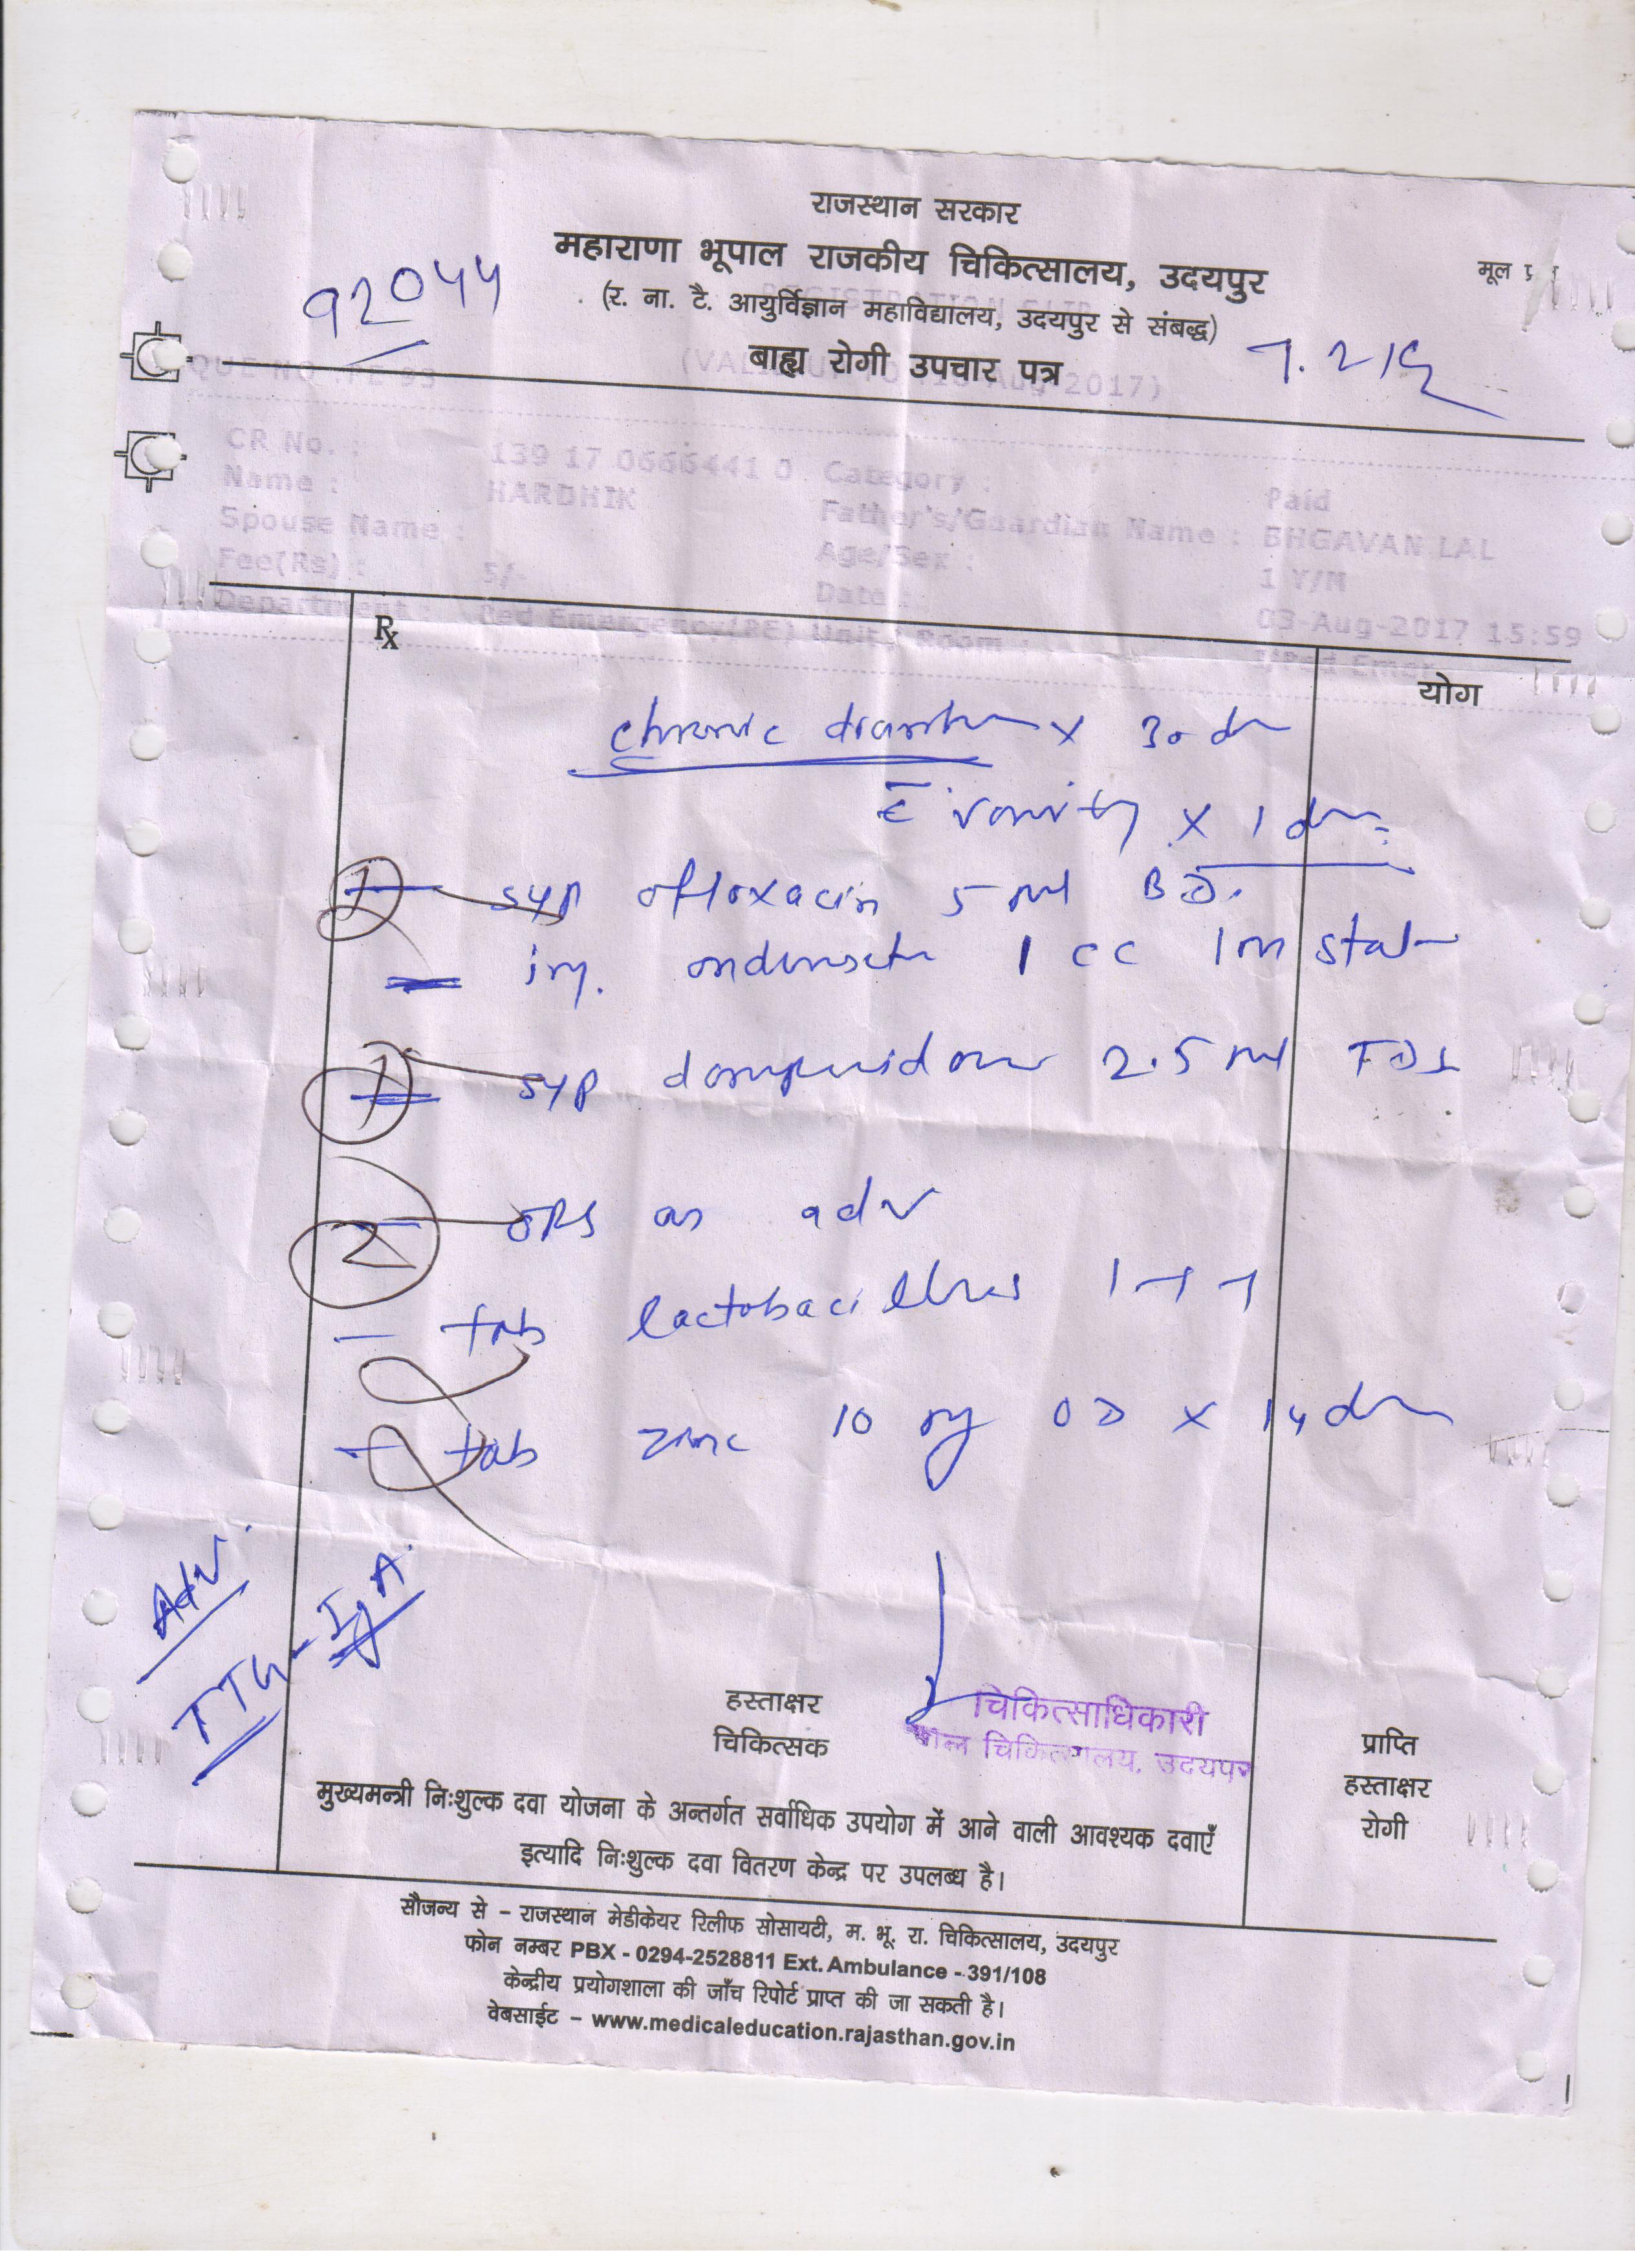 राजस्थान सरकार
महाराणा भूपाल राजकीय चिकित्सालय, उदयपुर
मूल
92044
(र. ना. टै. आयुर्विज्ञान महाविद्यालय, उदयपुर से संबद्ध)
REGISTRATION SLIP
बाह्य रोगी उपचार पत्र
QUE NO
(VALID UP TO Aug 2017)
CR No. : 139 17 0666441 0 Category : Paid
Name : HARDHIK Father's/Guardian Name : BHGAVAN LAL
Spouse Name : Age/Sex : 1 Y/M
Fee(Rs) : 5/- Date : 03-Aug-2017 15:59
Department : Ped Emergency(PE) Unit/ Room : Ped Emer
Rx
योग
chronic x 30
c̄ x 1
1 syp ofloxacin 5 ml BD.
inj. 1 cc Im stat
1 syp 2.5 ml TDS
2 ORS as adv
tab lactobacillus 1-1-1
tab zinc 10 mg OD x 14
Adv.
TTG - IgA
हस्ताक्षर
चिकित्सक
चिकित्साधिकारी
चिकित्सालय, उदयपुर
प्राप्ति
हस्ताक्षर
रोगी
मुख्यमन्त्री निःशुल्क दवा योजना के अन्तर्गत सर्वाधिक उपयोग में आने वाली आवश्यक दवाएँ
इत्यादि निःशुल्क दवा वितरण केन्द्र पर उपलब्ध है।
सौजन्य से – राजस्थान मेडीकेयर रिलीफ सोसायटी, म. भू. रा. चिकित्सालय, उदयपुर
फोन नम्बर PBX - 0294-2528811 Ext. Ambulance - 391/108
केन्द्रीय प्रयोगशाला की जाँच रिपोर्ट प्राप्त की जा सकती है।
वेबसाईट – www.medicaleducation.rajasthan.gov.in